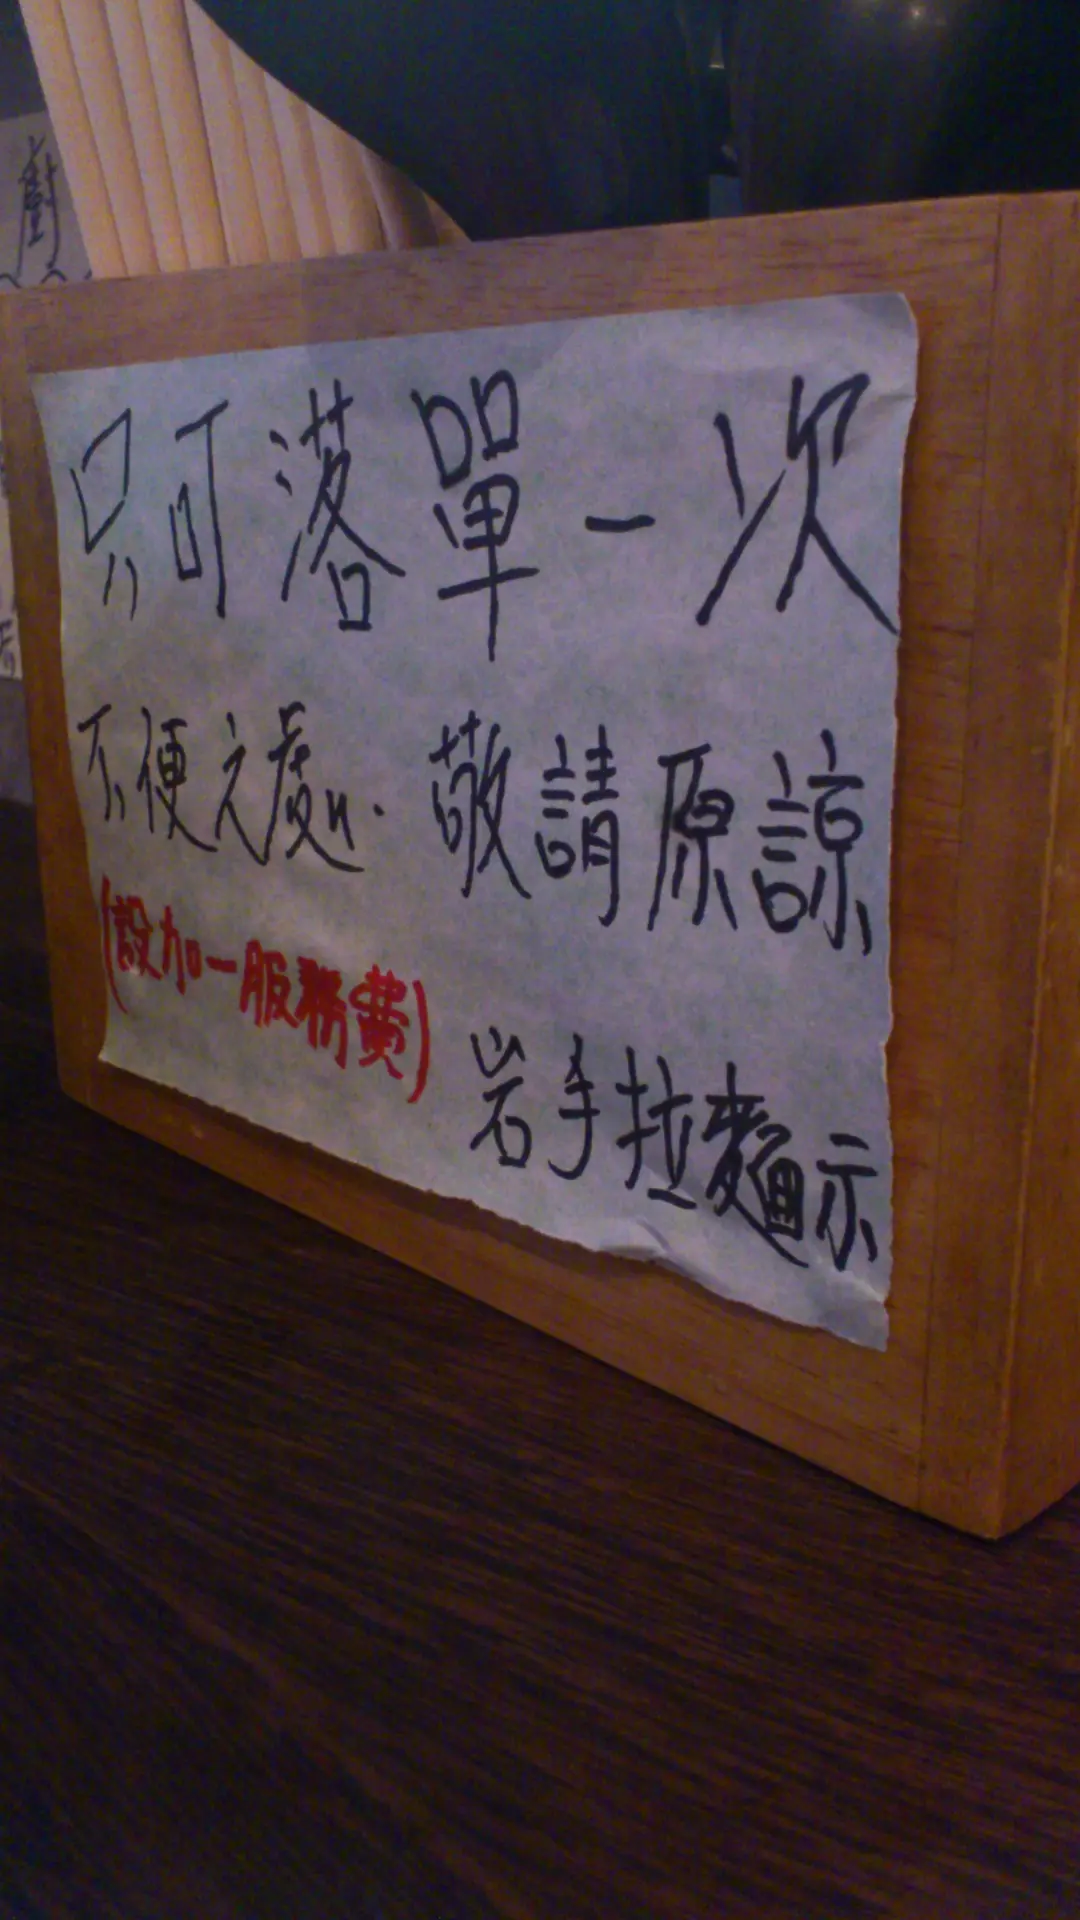 只可落單一次
不便之處.敬請原諒
(設加一服務費)
岩手拉麵示